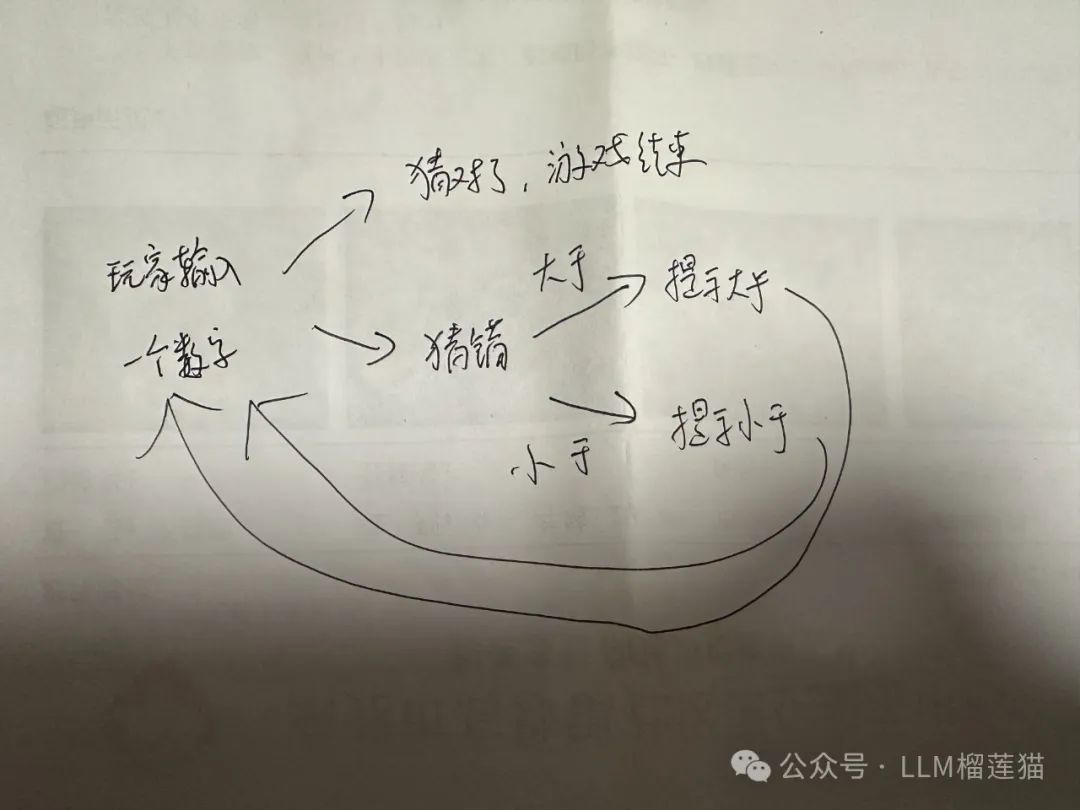 猜对了，游戏结束
玩家输入
一个数字
大于
提示大于
猜错
提示小于
小于
公众号·LLM榴莲猫